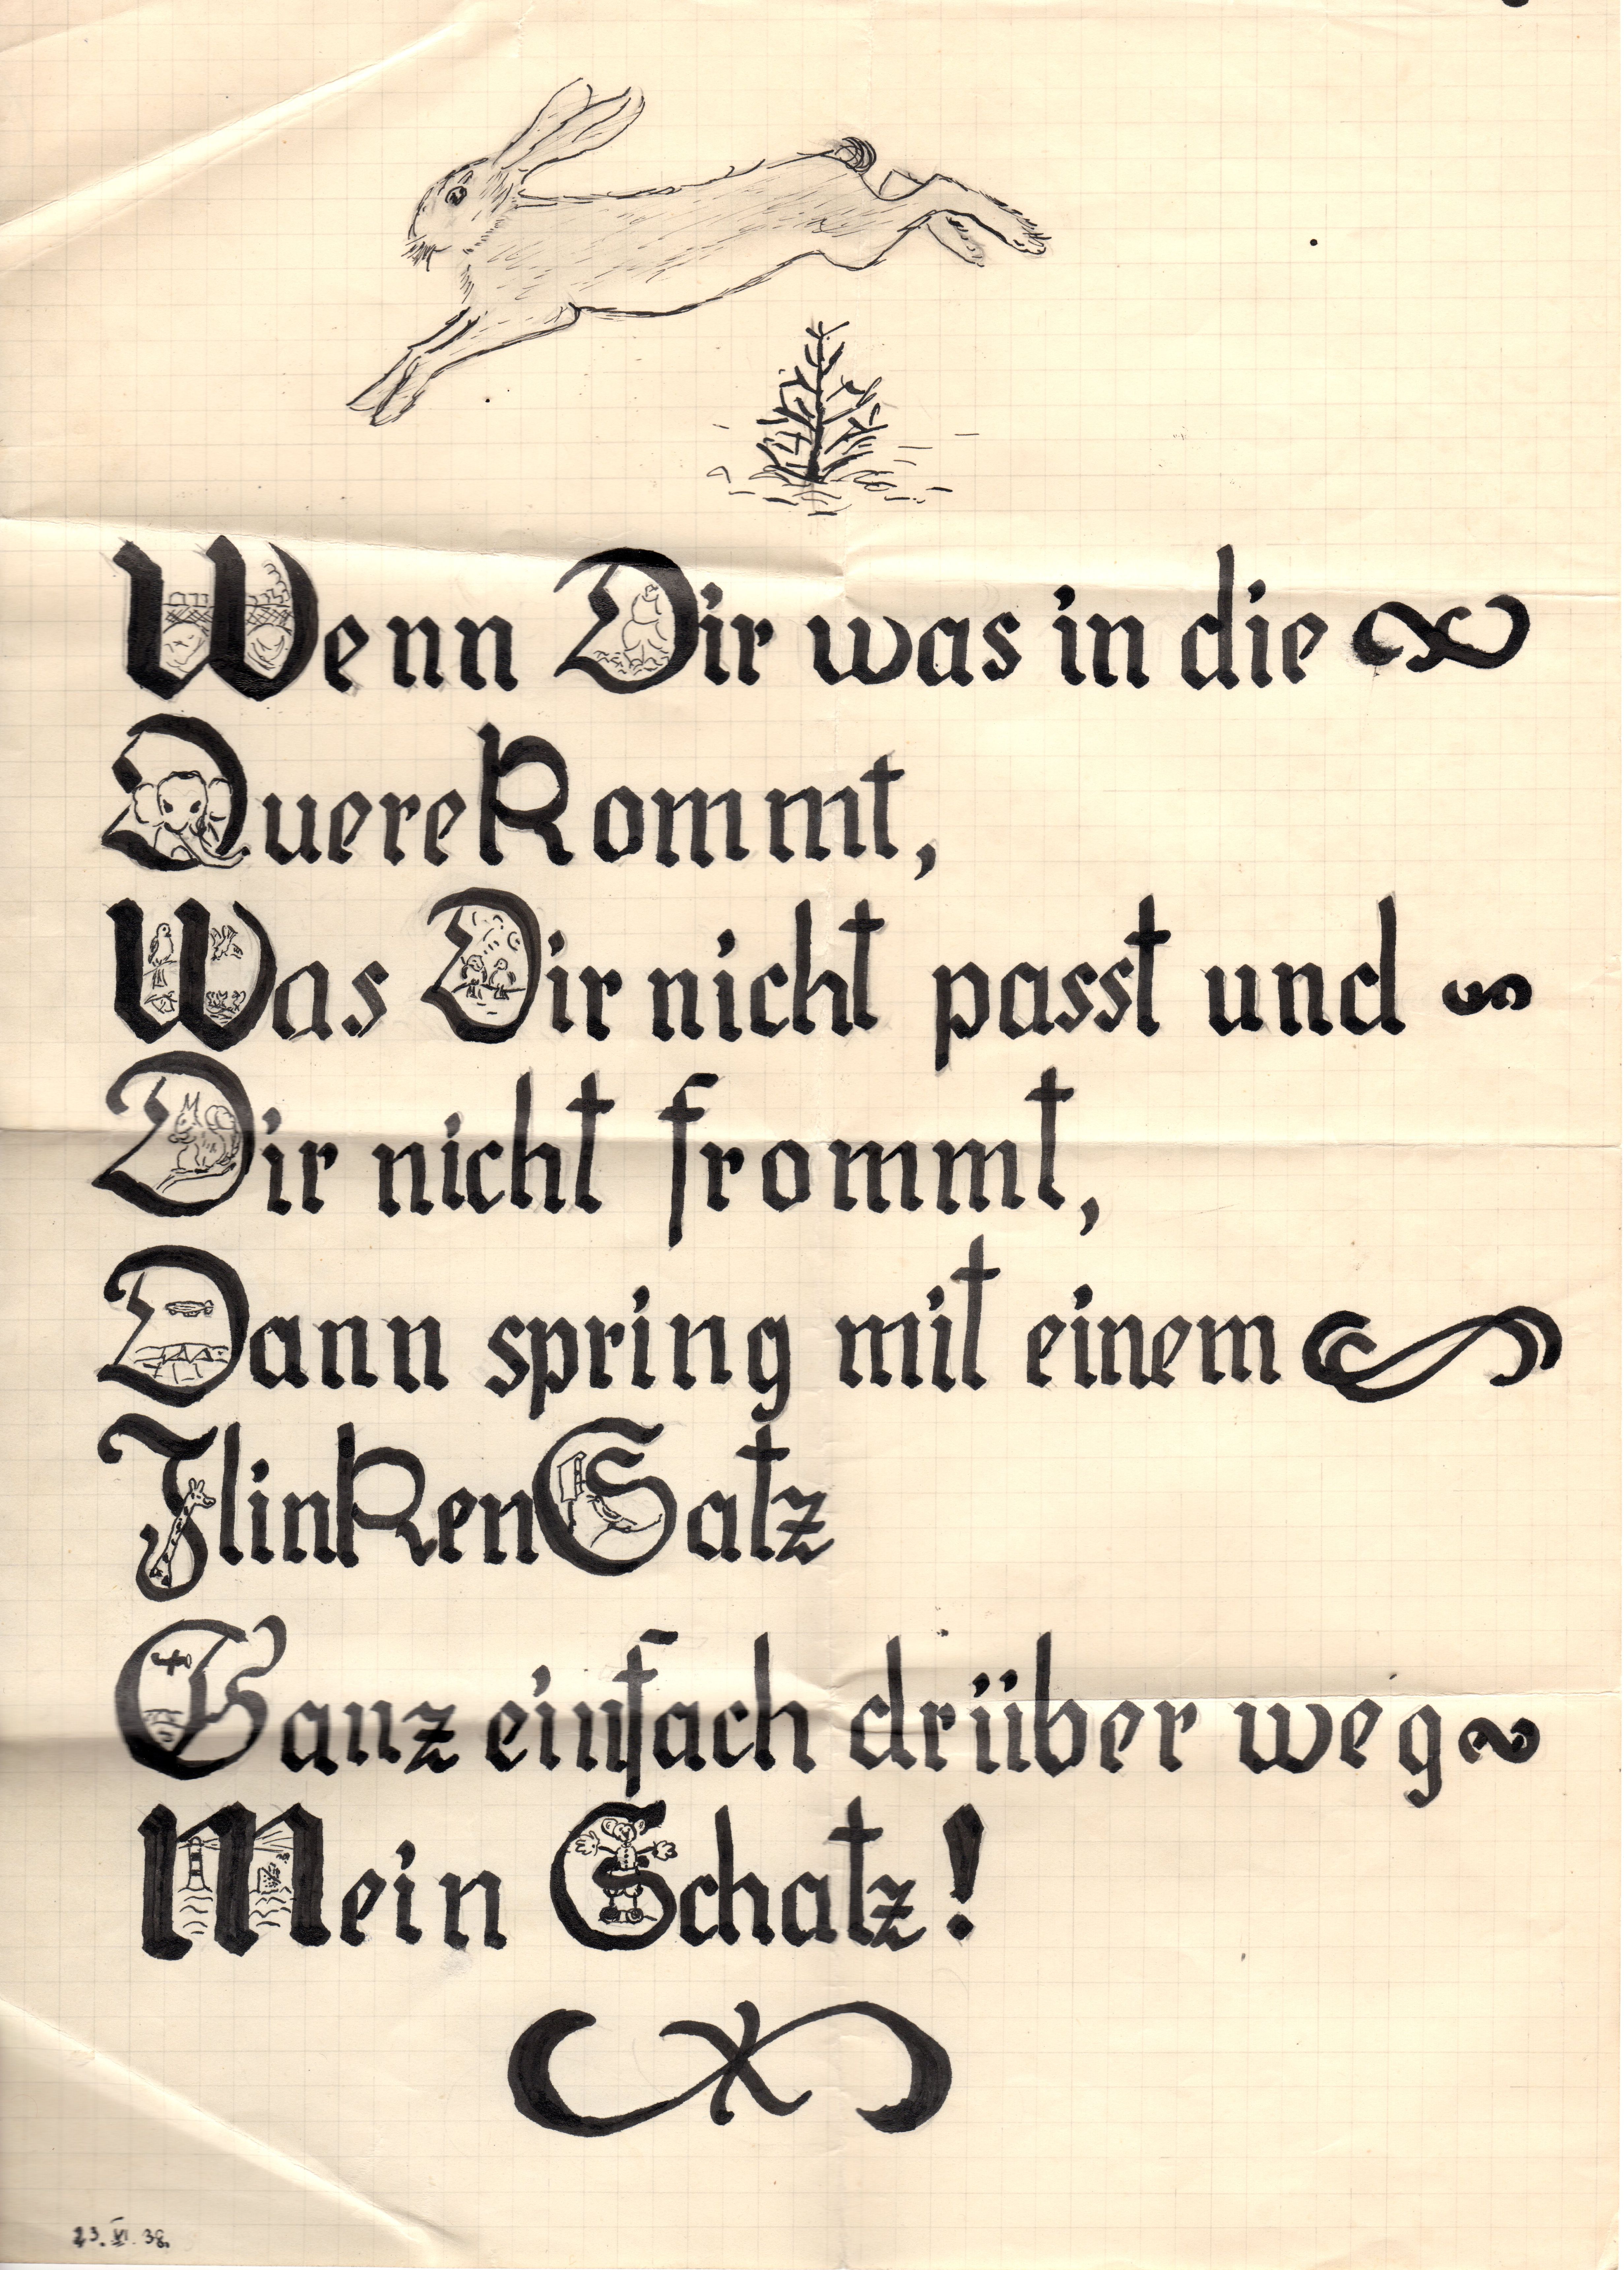 Wenn Dir was in die
Quere kommt,
Was Dir nicht passt und
Dir nicht frommt,
Dann spring mit einem
Flinken Satz
Ganz einfach drüber weg
Mein Schatz!
23. VI. 38.